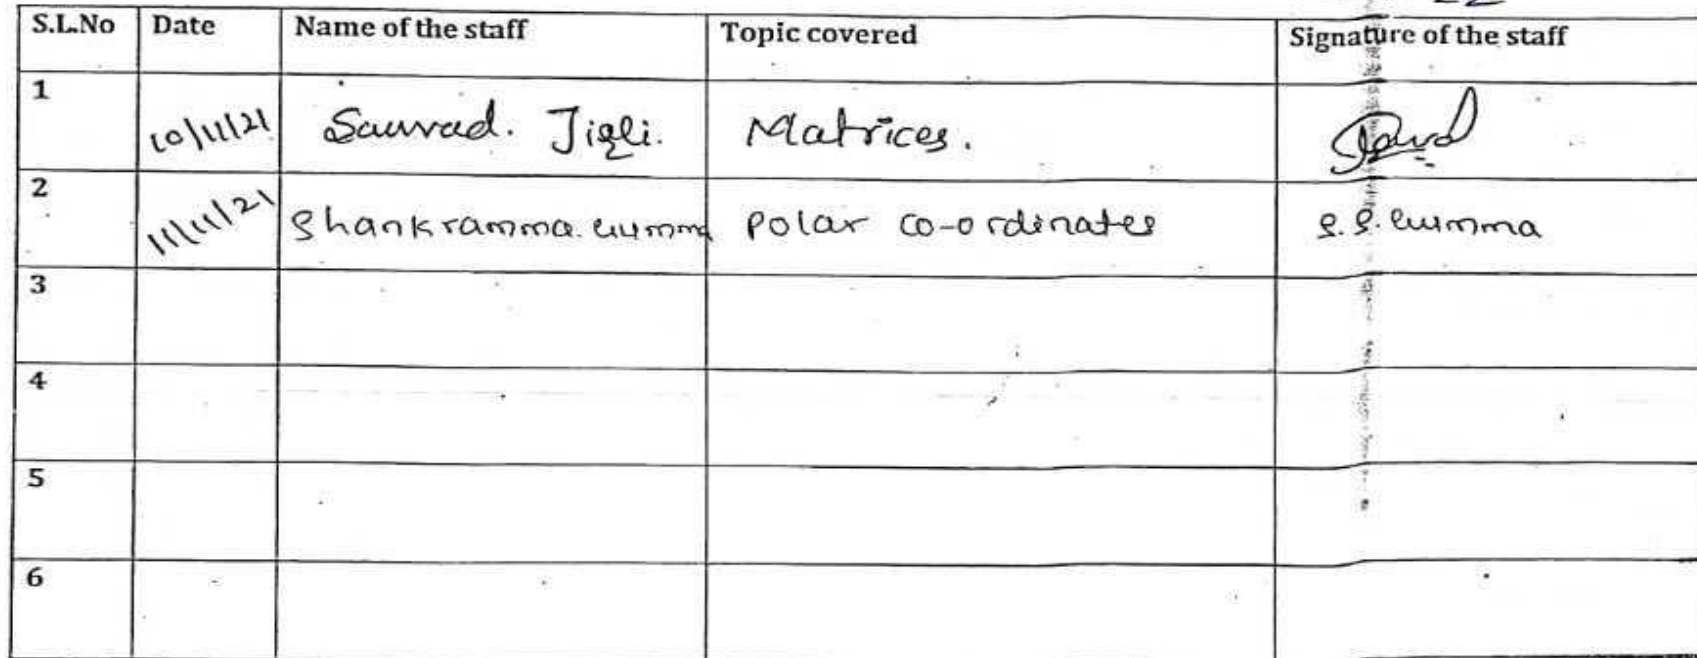 S.L.No Date Name of the staff Topic covered Signature of the staff
1 10/11/21 Sauvad. Jigli. Matrices.
2 11/11/21 Shankramma. Polar co-ordinates S.S.
3
4
5
6